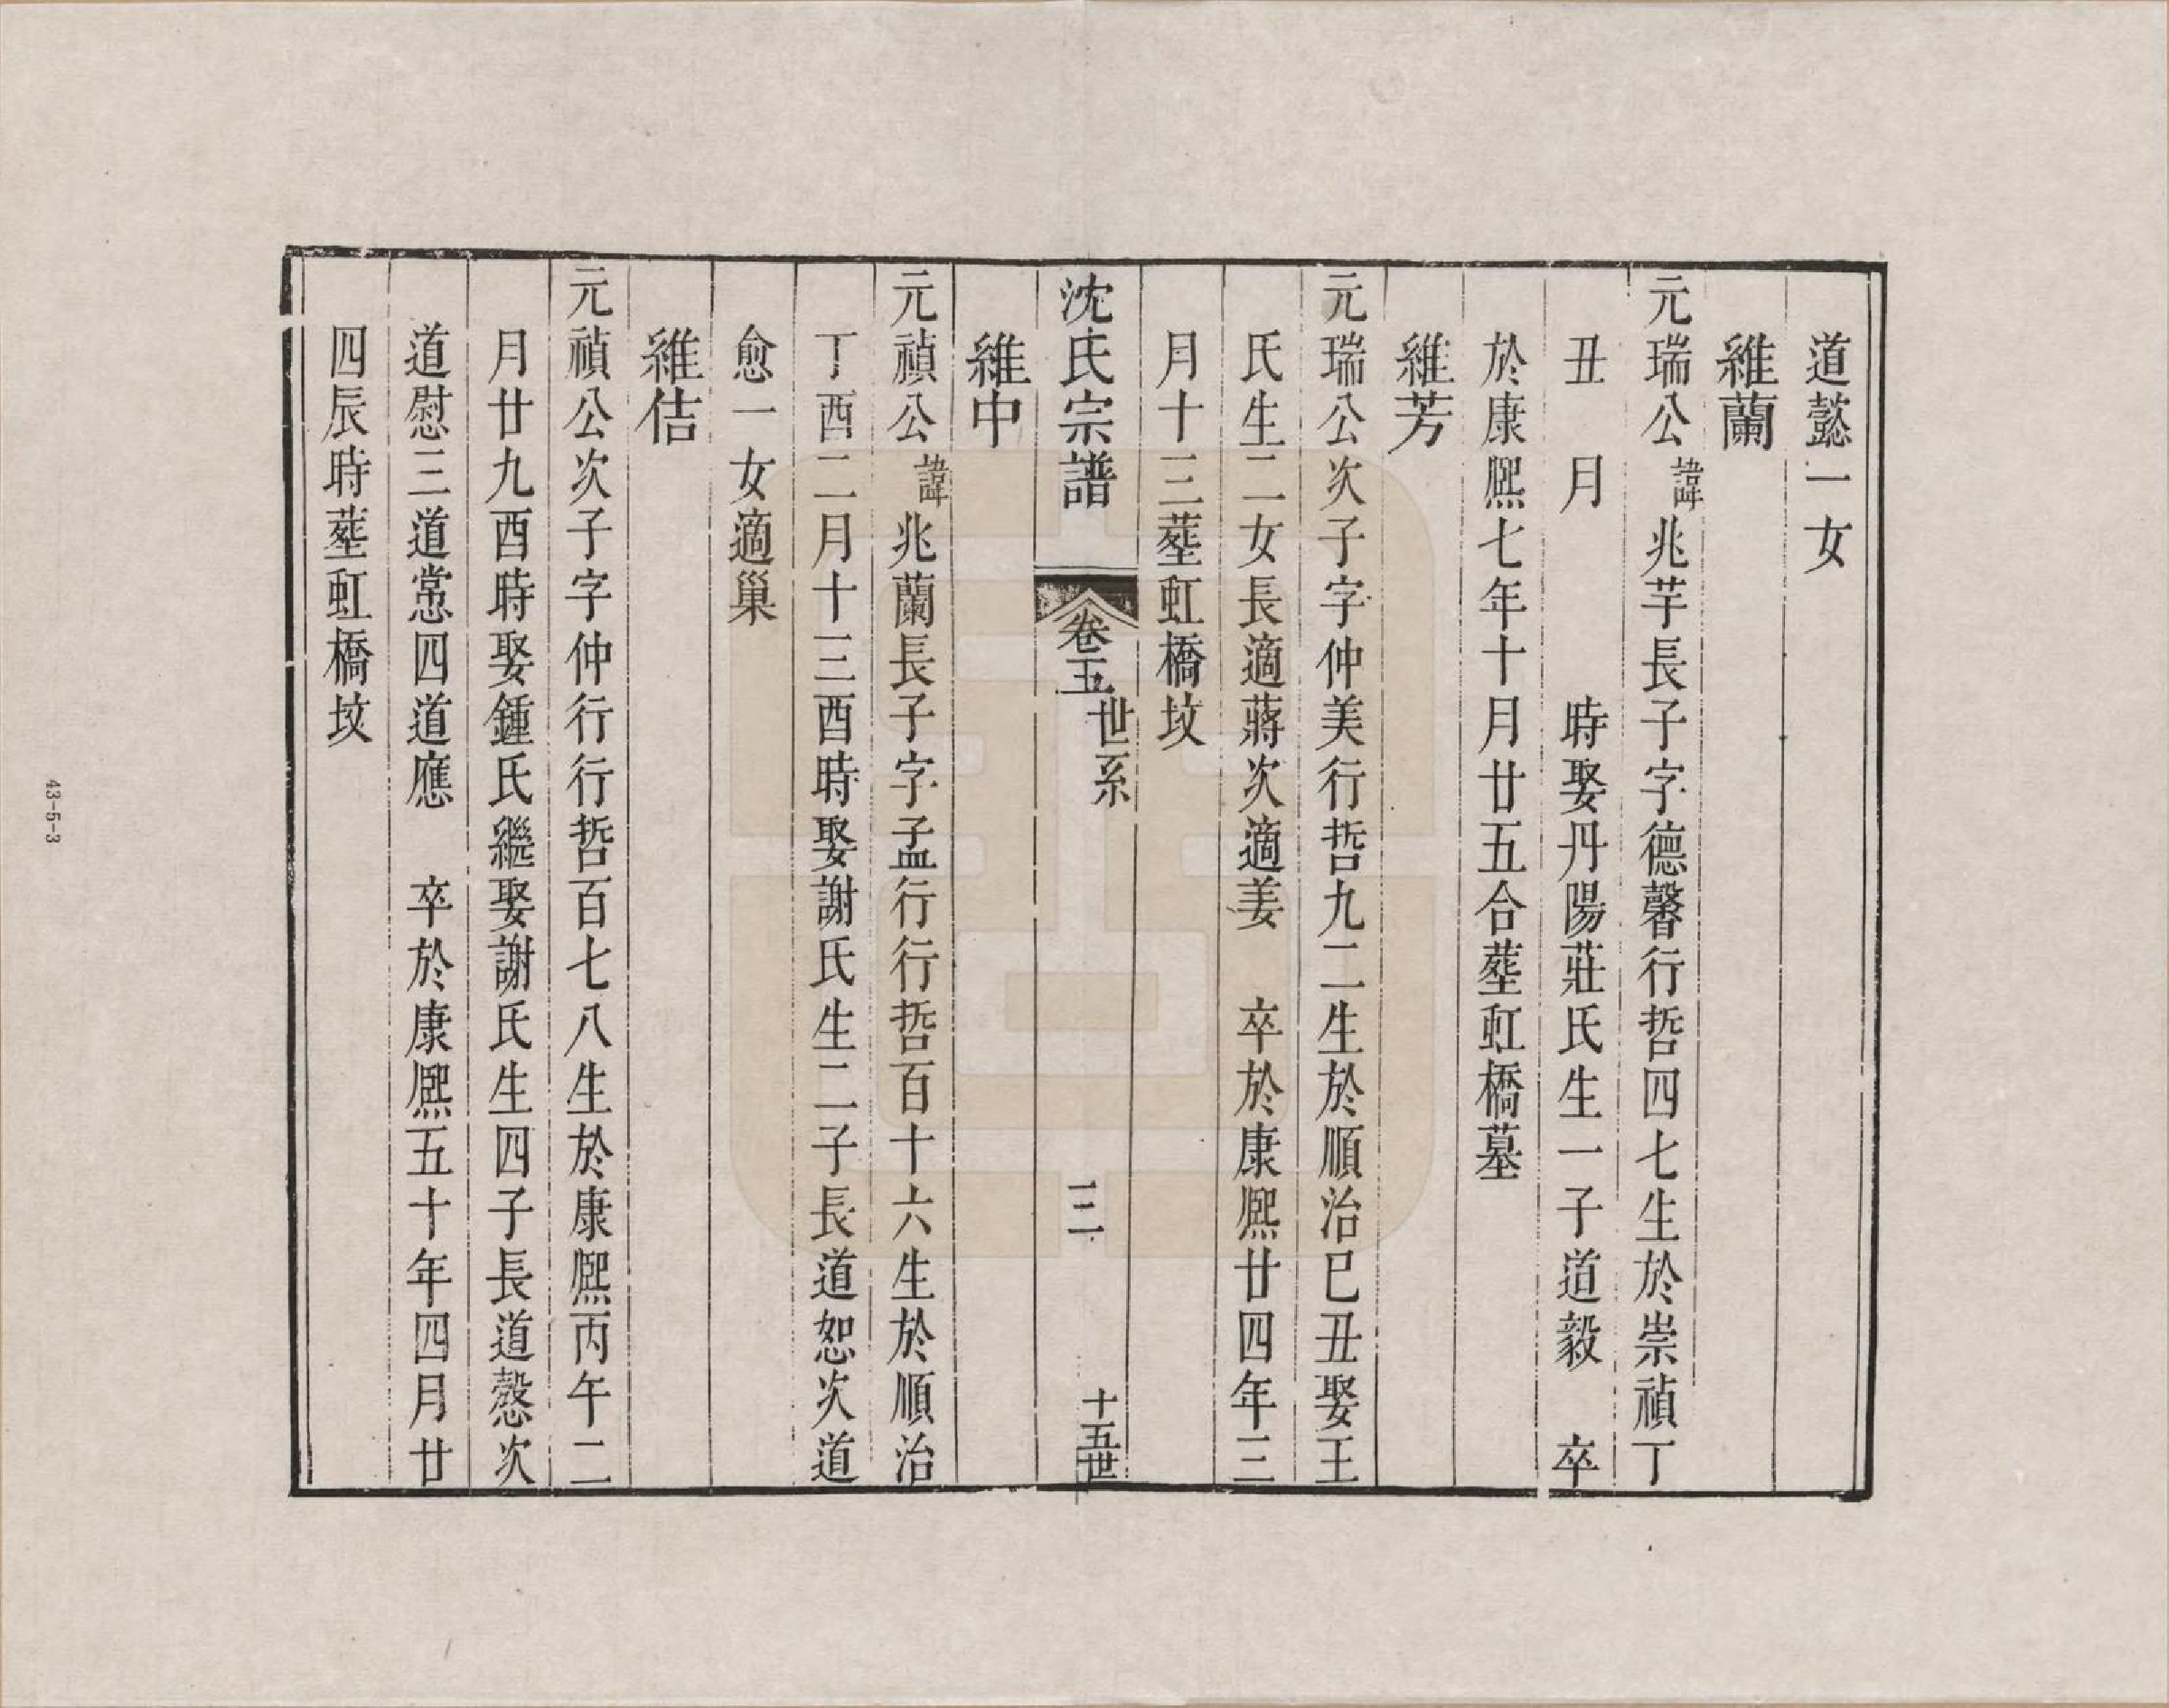 道懿一女
維蘭
元瑞公諱兆芊長子字德馨行哲四七生於崇禎丁
丑　月　　　時娶丹陽莊氏生一子道毅　卒
於康熈七年十月廿五合塟虹橋墓
維芳
元瑞公次子字仲美行哲九二生於順治已丑娶王
氏生二女長適蔣次適姜　卒於康熈廿四年三
月十三塟虹橋坟
沈氏宗譜
卷五
世系
三
十五世
維中
元禎公諱兆蘭長子字孟行行哲百十六生於順治
丁酉二月十三酉時娶謝氏生二子長道恕次道
愈一女適巢
維佶
元禎公次子字仲行行哲百七八生於康熈丙午二
月廿九酉時娶鍾氏繼娶謝氏生四子長道慤次
道慰三道常四道應　卒於康熈五十年四月廿
四辰時塟虹橋坟
43-5-3